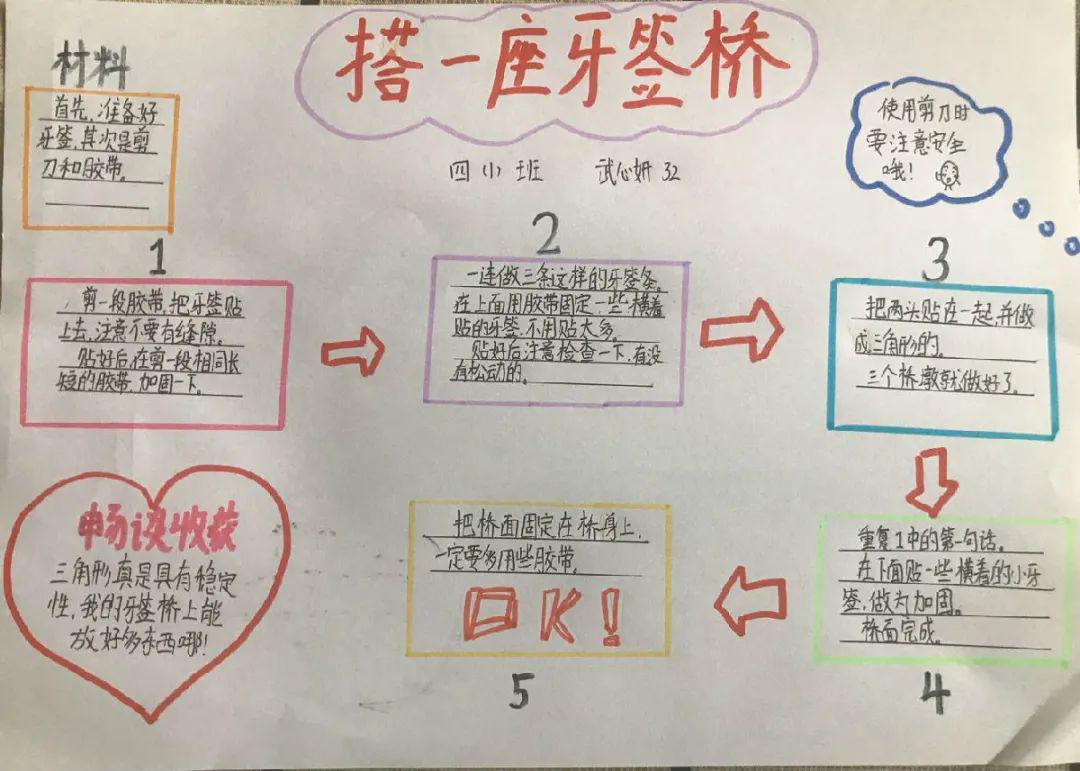 搭一座牙签桥
四(1)班 武心妍 32
材料
首先,准备好
牙签,其次是剪
刀和胶带。
使用剪刀时
要注意安全
哦!
1
剪一段胶带,把牙签贴
上去,注意不要有缝隙。
贴好后,在剪一段相同长
短的胶带,加固一下。
2
一连做三条这样的牙签条。
在上面用胶带固定一些横着
贴的牙签,不用贴太多。
贴好后注意检查一下,有没
有松动的。
3
把两头贴在一起,并做
成三角形的。
三个桥墩就做好了。
4
重复1中的第一句话。
在下面贴一些横着的小牙
签,做为加固。
桥面完成。
5
把桥面固定在桥身上,
一定要多用些胶带。
OK!
畅谈收获
三角形真是具有稳定
性,我的牙签桥上能
放好多东西哪!